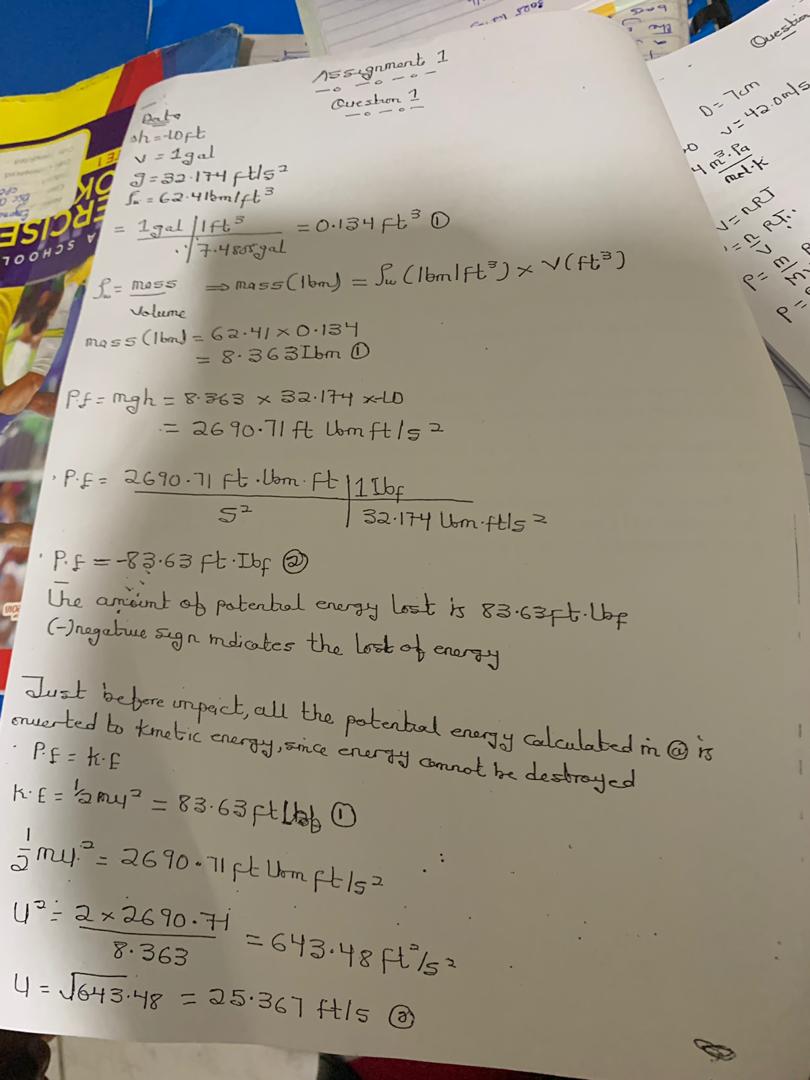 Assignment 1
Question 1
Data
Δh = -10ft
v = 1gal
g = 32.174 ft/s²
ρw = 62.41bm/ft³
= 1gal | 1ft³ = 0.134 ft³ ①
7.4805gal
ρw = mass ⇒ mass (lbm) = ρw (lbm/ft³) × V(ft³)
Volume
mass (lbm) = 62.41 × 0.134
= 8.363Ibm ①
P.f = mgh = 8.363 × 32.174 × -10
= 2690.71 ft lbm ft/s²
P.f = 2690.71 ft.lbm.ft | 1 Ibf
s² | 32.174 lbm.ft/s²
P.f = -83.63 ft.Ibf ②
The amount of potential energy lost is 83.63ft.lbf
(-)negative sign indicates the lost of energy
Just before impact, all the potential energy calculated in ⓐ is
onverted to kinetic energy, since energy cannot be destroyed
P.f = K.E
K.E = ½mu² = 83.63ft ①
½mu² = 2690.71 ft lbm ft/s²
u² = 2 × 2690.71 = 643.48 ft²/s²
8.363
u = √643.48 = 25.367 ft/s ②
Question
D = 7cm
v = 42.0m/s
m³.Pa
mol.K
V = nRT
EXERCISE
SCHOOL